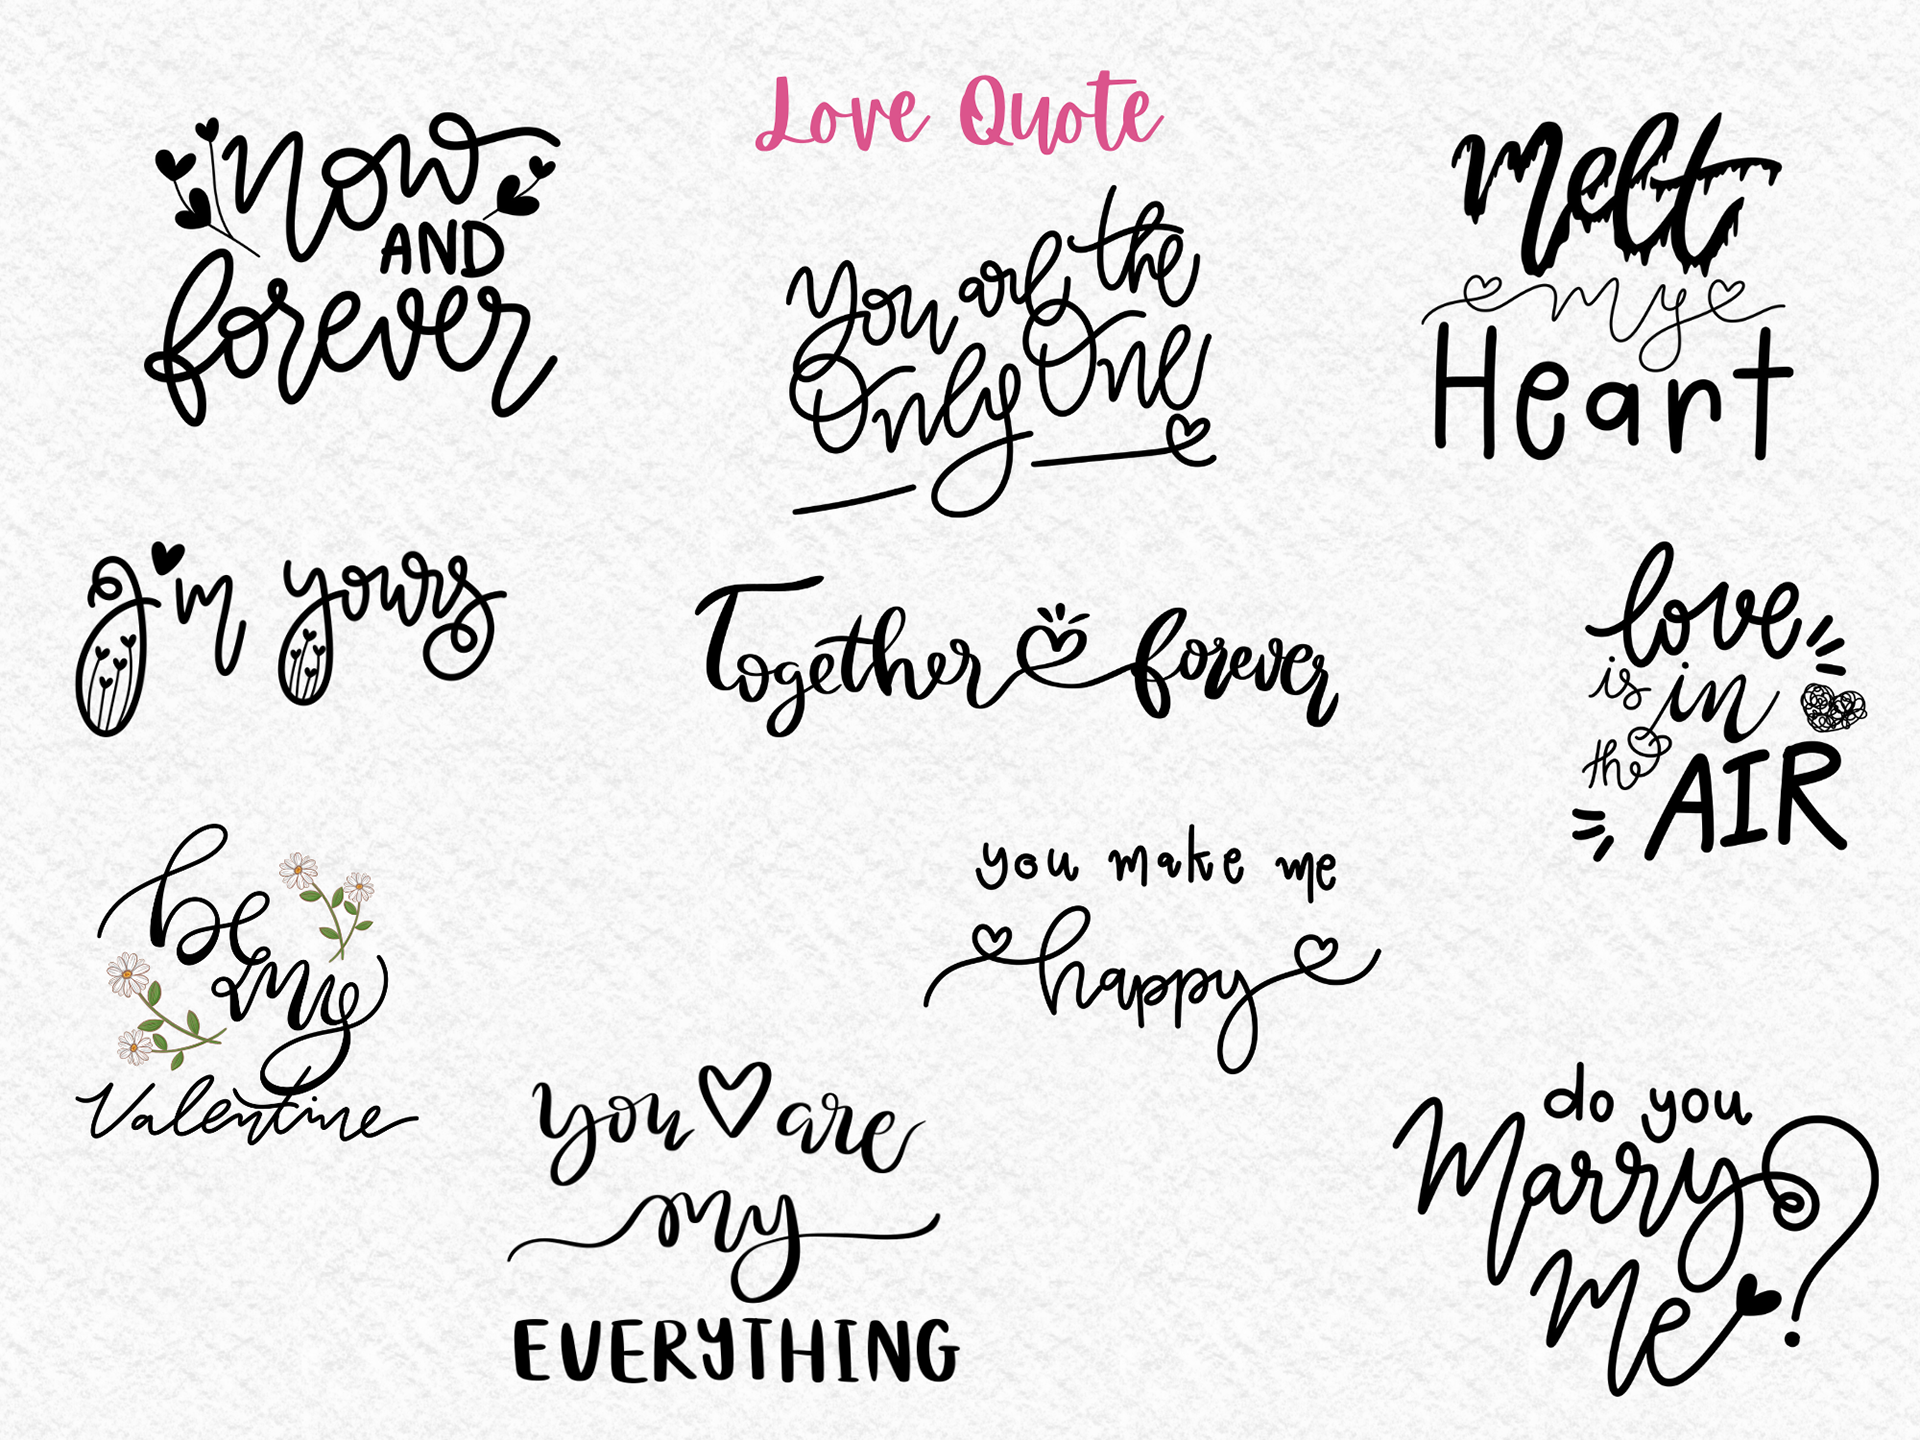 Love Quote
now
AND
forever
you are the
Only One
melt
my
Heart
I'm yours
Together forever
love
is in
the AIR
be
my
Valentine
you make me
happy
you are
my
EVERYTHING
do you
Marry
Me?